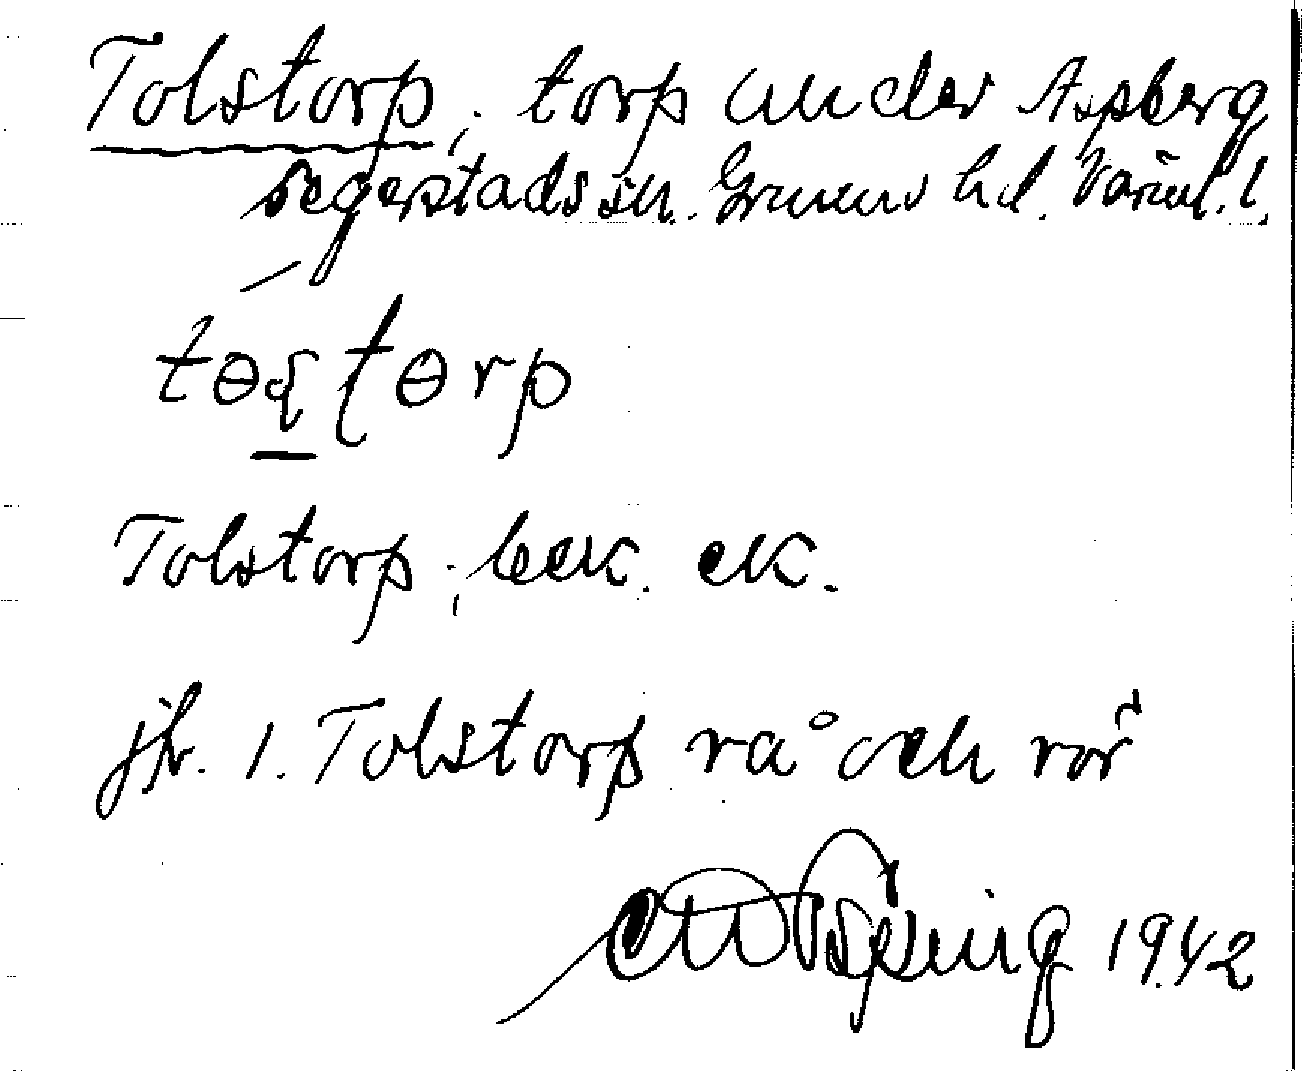 Tolstorp; torp under Aspberg,
Segerstads sn. Grums hd. Värml. l.
tɵstɵrp
Tolstorp; bek. ek.
jfr. 1. Tolstorp rå och rör
1942